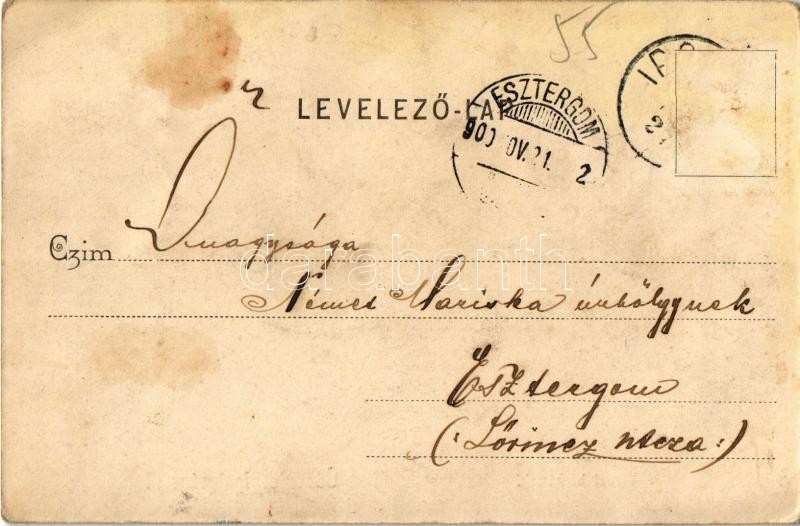 55
LEVELEZŐ-LAP
ESZTERGOM
900 NOV. 21.
2
Czim Őnagysága
Német Mariska úrhölgynek
Esztergom
(: Lőrincz utcza :)
darabanth